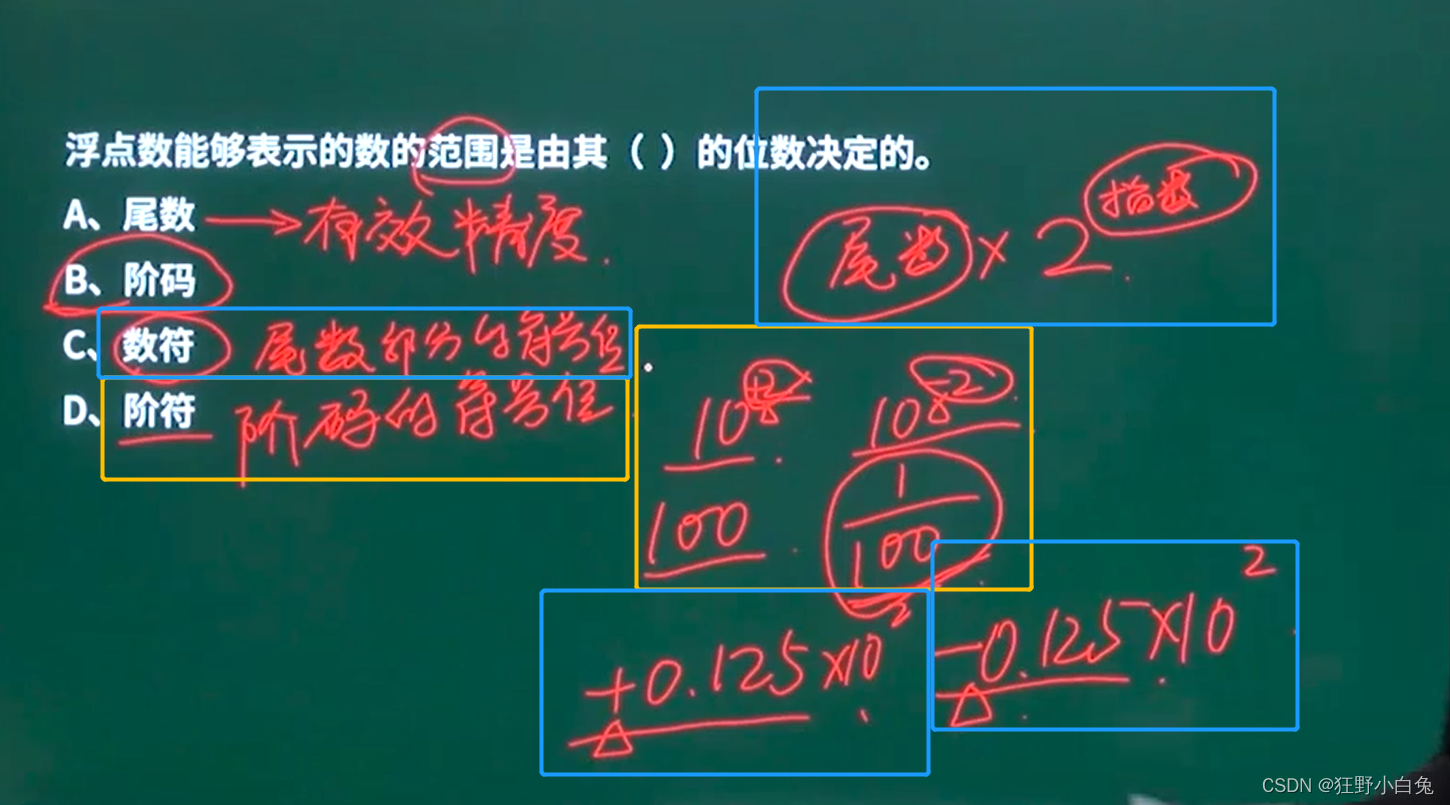 浮点数能够表示的数的范围是由其（ ）的位数决定的。
A、尾数 → 有效精度.
B、阶码
C、数符 尾数部分的符号位
D、阶符 阶码的符号位
尾数 × 2^指数
10^+2 10^-2
100 1/100
+0.125×10^2 -0.125×10^2
CSDN @狂野小白兔